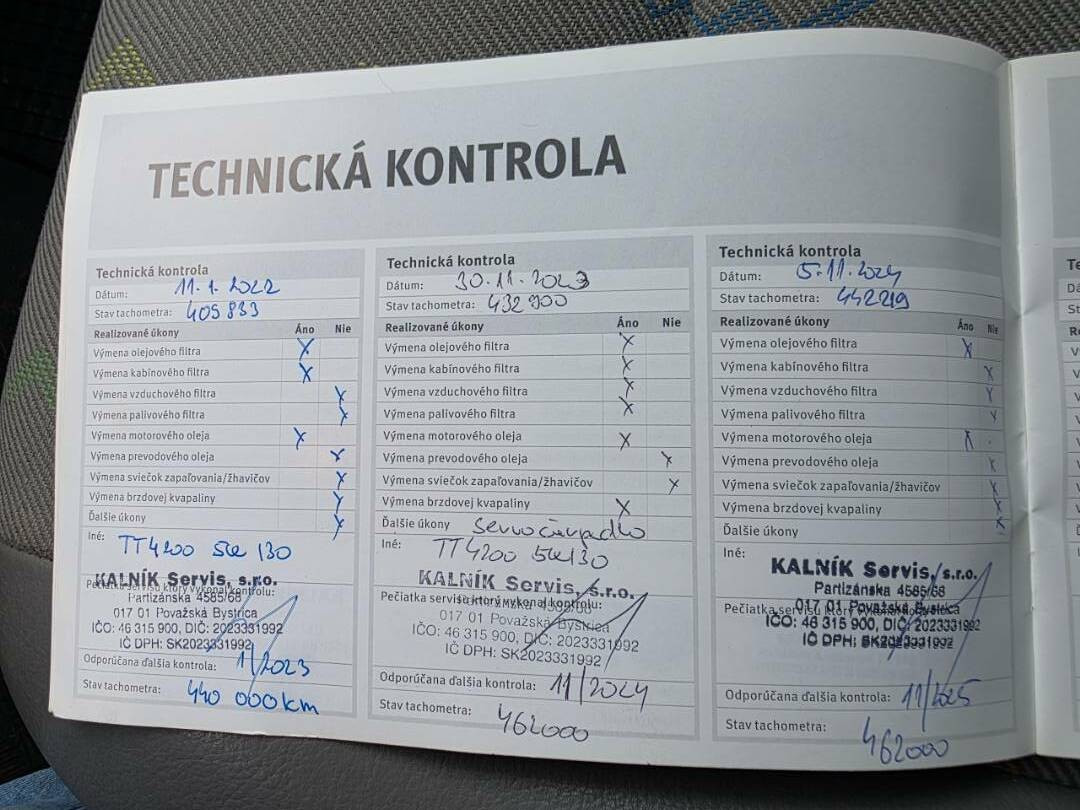 TECHNICKÁ KONTROLA
Technická kontrola
Dátum: 11.1.2022
Stav tachometra: 405 833
Realizované úkony Áno Nie
Výmena olejového filtra X
Výmena kabínového filtra X
Výmena vzduchového filtra X
Výmena palivového filtra X
Výmena motorového oleja X
Výmena prevodového oleja X
Výmena sviečok zapaľovania/žhavičov X
Výmena brzdovej kvapaliny X
Ďalšie úkony X
Iné: TT4200 5W130
KALNÍK Servis, s.r.o.
Pečiatka servisu ktorý vykonal kontrolu:
Partizánska 4585/68
017 01 Považská Bystrica
IČO: 46 315 900, DIČ: 2023331992
IČ DPH: SK2023331992
Odporúčana ďalšia kontrola: 1/2023
Stav tachometra: 440 000km
Technická kontrola
Dátum: 30.11.2023
Stav tachometra: 432 900
Realizované úkony Áno Nie
Výmena olejového filtra X
Výmena kabínového filtra X
Výmena vzduchového filtra X
Výmena palivového filtra X
Výmena motorového oleja X
Výmena prevodového oleja X
Výmena sviečok zapaľovania/žhavičov X
Výmena brzdovej kvapaliny X
Ďalšie úkony servočerpadlo
Iné: TT4200 5W130
KALNÍK Servis, s.r.o.
Pečiatka servisu ktorý vykonal kontrolu:
017 01 Považská Bystrica
IČO: 46 315 900, DIČ: 2023331992
IČ DPH: SK2023331992
Odporúčana ďalšia kontrola: 11/2024
Stav tachometra: 462000
Technická kontrola
Dátum: 5.11.2024
Stav tachometra: 442219
Realizované úkony Áno Nie
Výmena olejového filtra X
Výmena kabínového filtra X
Výmena vzduchového filtra X
Výmena palivového filtra X
Výmena motorového oleja X
Výmena prevodového oleja X
Výmena sviečok zapaľovania/žhavičov X
Výmena brzdovej kvapaliny X
Ďalšie úkony X
Iné:
KALNÍK Servis, s.r.o.
Partizánska 4585/68
Pečiatka servisu ktorý vykonal kontrolu:
017 01 Považská Bystrica
IČO: 46 315 900, DIČ: 2023331992
IČ DPH: SK2023331992
Odporúčana ďalšia kontrola: 11/2025
Stav tachometra: 462000